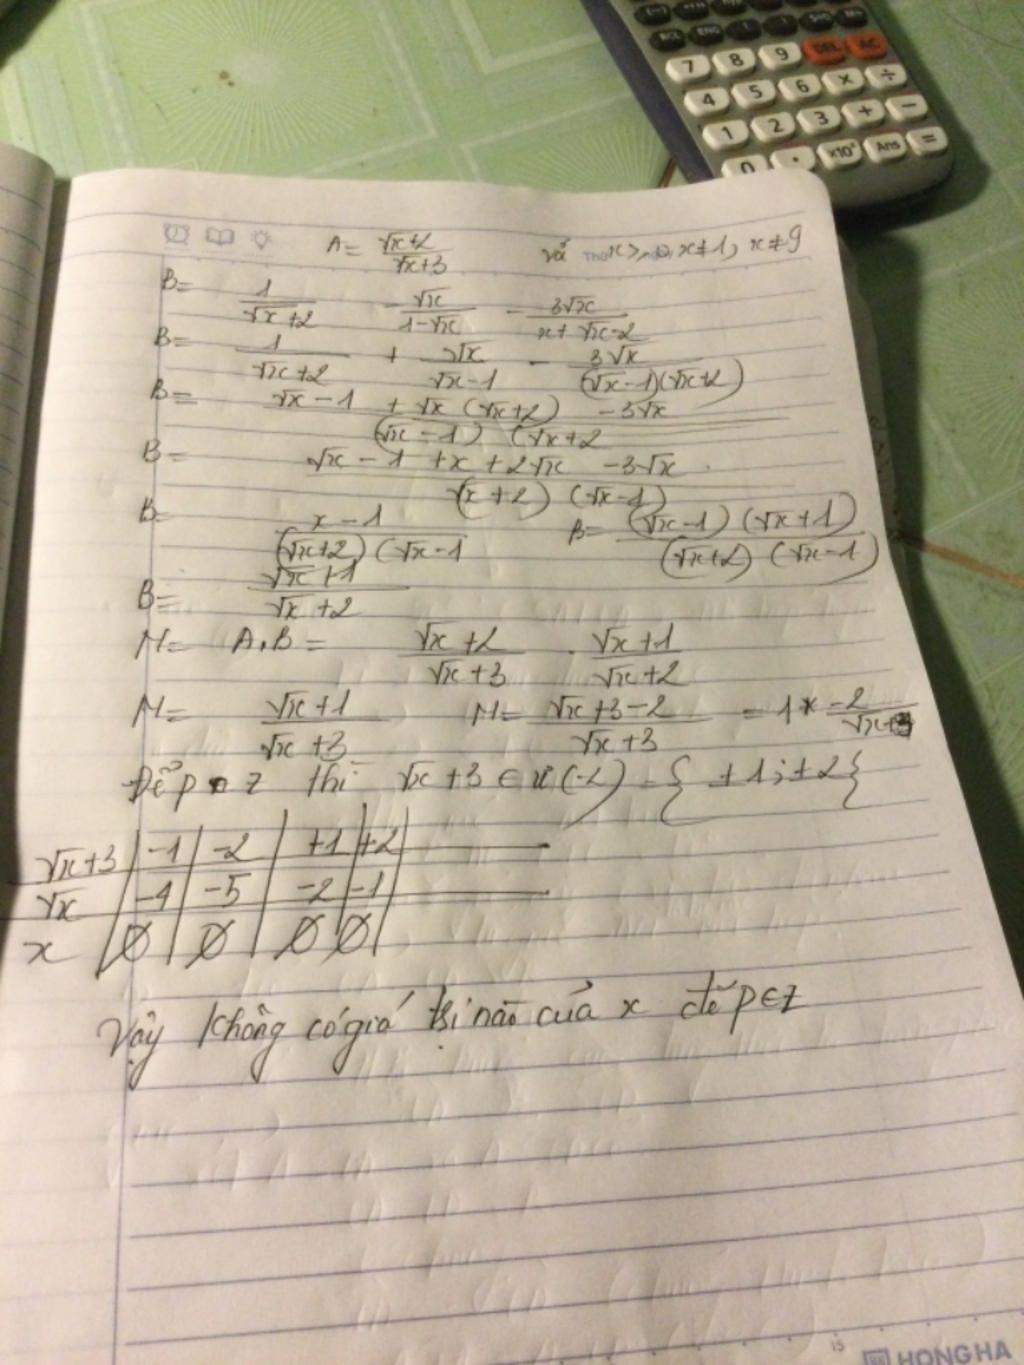 DEL AC
7 8 9
4 5 6 × ÷
1 2 3 + −
0 . ×10ˣ Ans =
A = √x+2 / √x+3 với x ≥ 0, x ≠ 1, x ≠ 9
B = 1 / √x+2 − √x / 1−√x − 3√x / x+√x−2
B = 1 / √x+2 + √x / √x−1 − 3√x / (√x−1)(√x+2)
B = √x−1 + √x (√x+2) −3√x / (√x−1) (√x+2
B = √x − 1 + x + 2√x − 3√x / (√x+2) (√x−1)
B = x−1 / (√x+2) (√x−1 B = (√x−1) (√x+1) / (√x+2) (√x−1)
B = √x+1 / √x+2
M = A.B = √x+2 / √x+3 . √x+1 / √x+2
M = √x+1 / √x+3 M = √x+3−2 / √x+3 = 1 + −2 / √x+3
Để p ∈ z thì √x+3 ∈ Ư(-2) = { ±1; ±2}
√x+3 | −1 | −2 | +1 | +2 |
√x | −4 | −5 | −2 | −1 |
x | ∅ | ∅ | ∅ | ∅ |
Vậy không có giá trị nào của x để p ∈ z
15
HONG HA